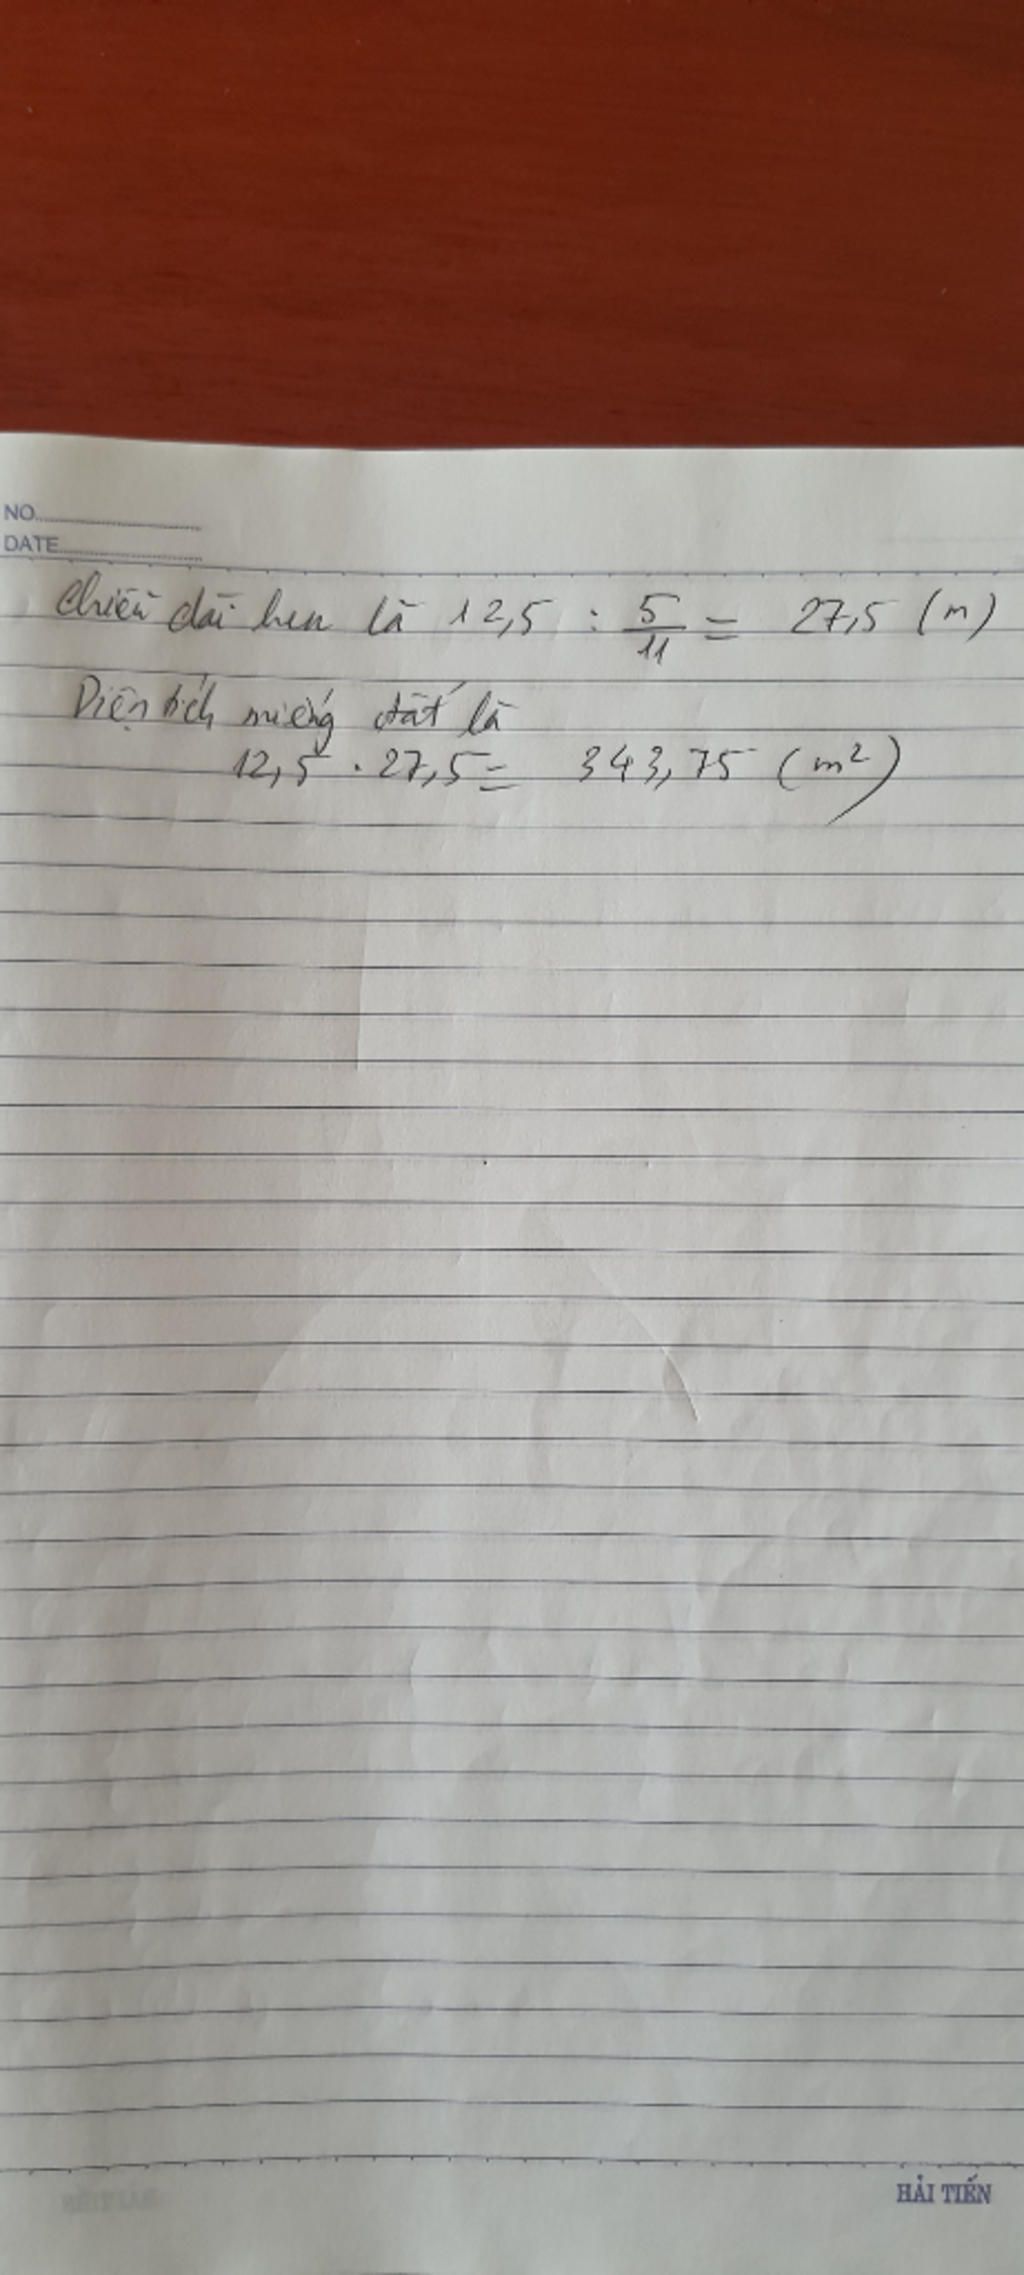 NO
DATE
Chiều dài hcn là 12,5 : 5/11 = 27,5 (m)
Diện tích miếng đất là
12,5 . 27,5 = 343,75 (m²)
HẢI TIẾN